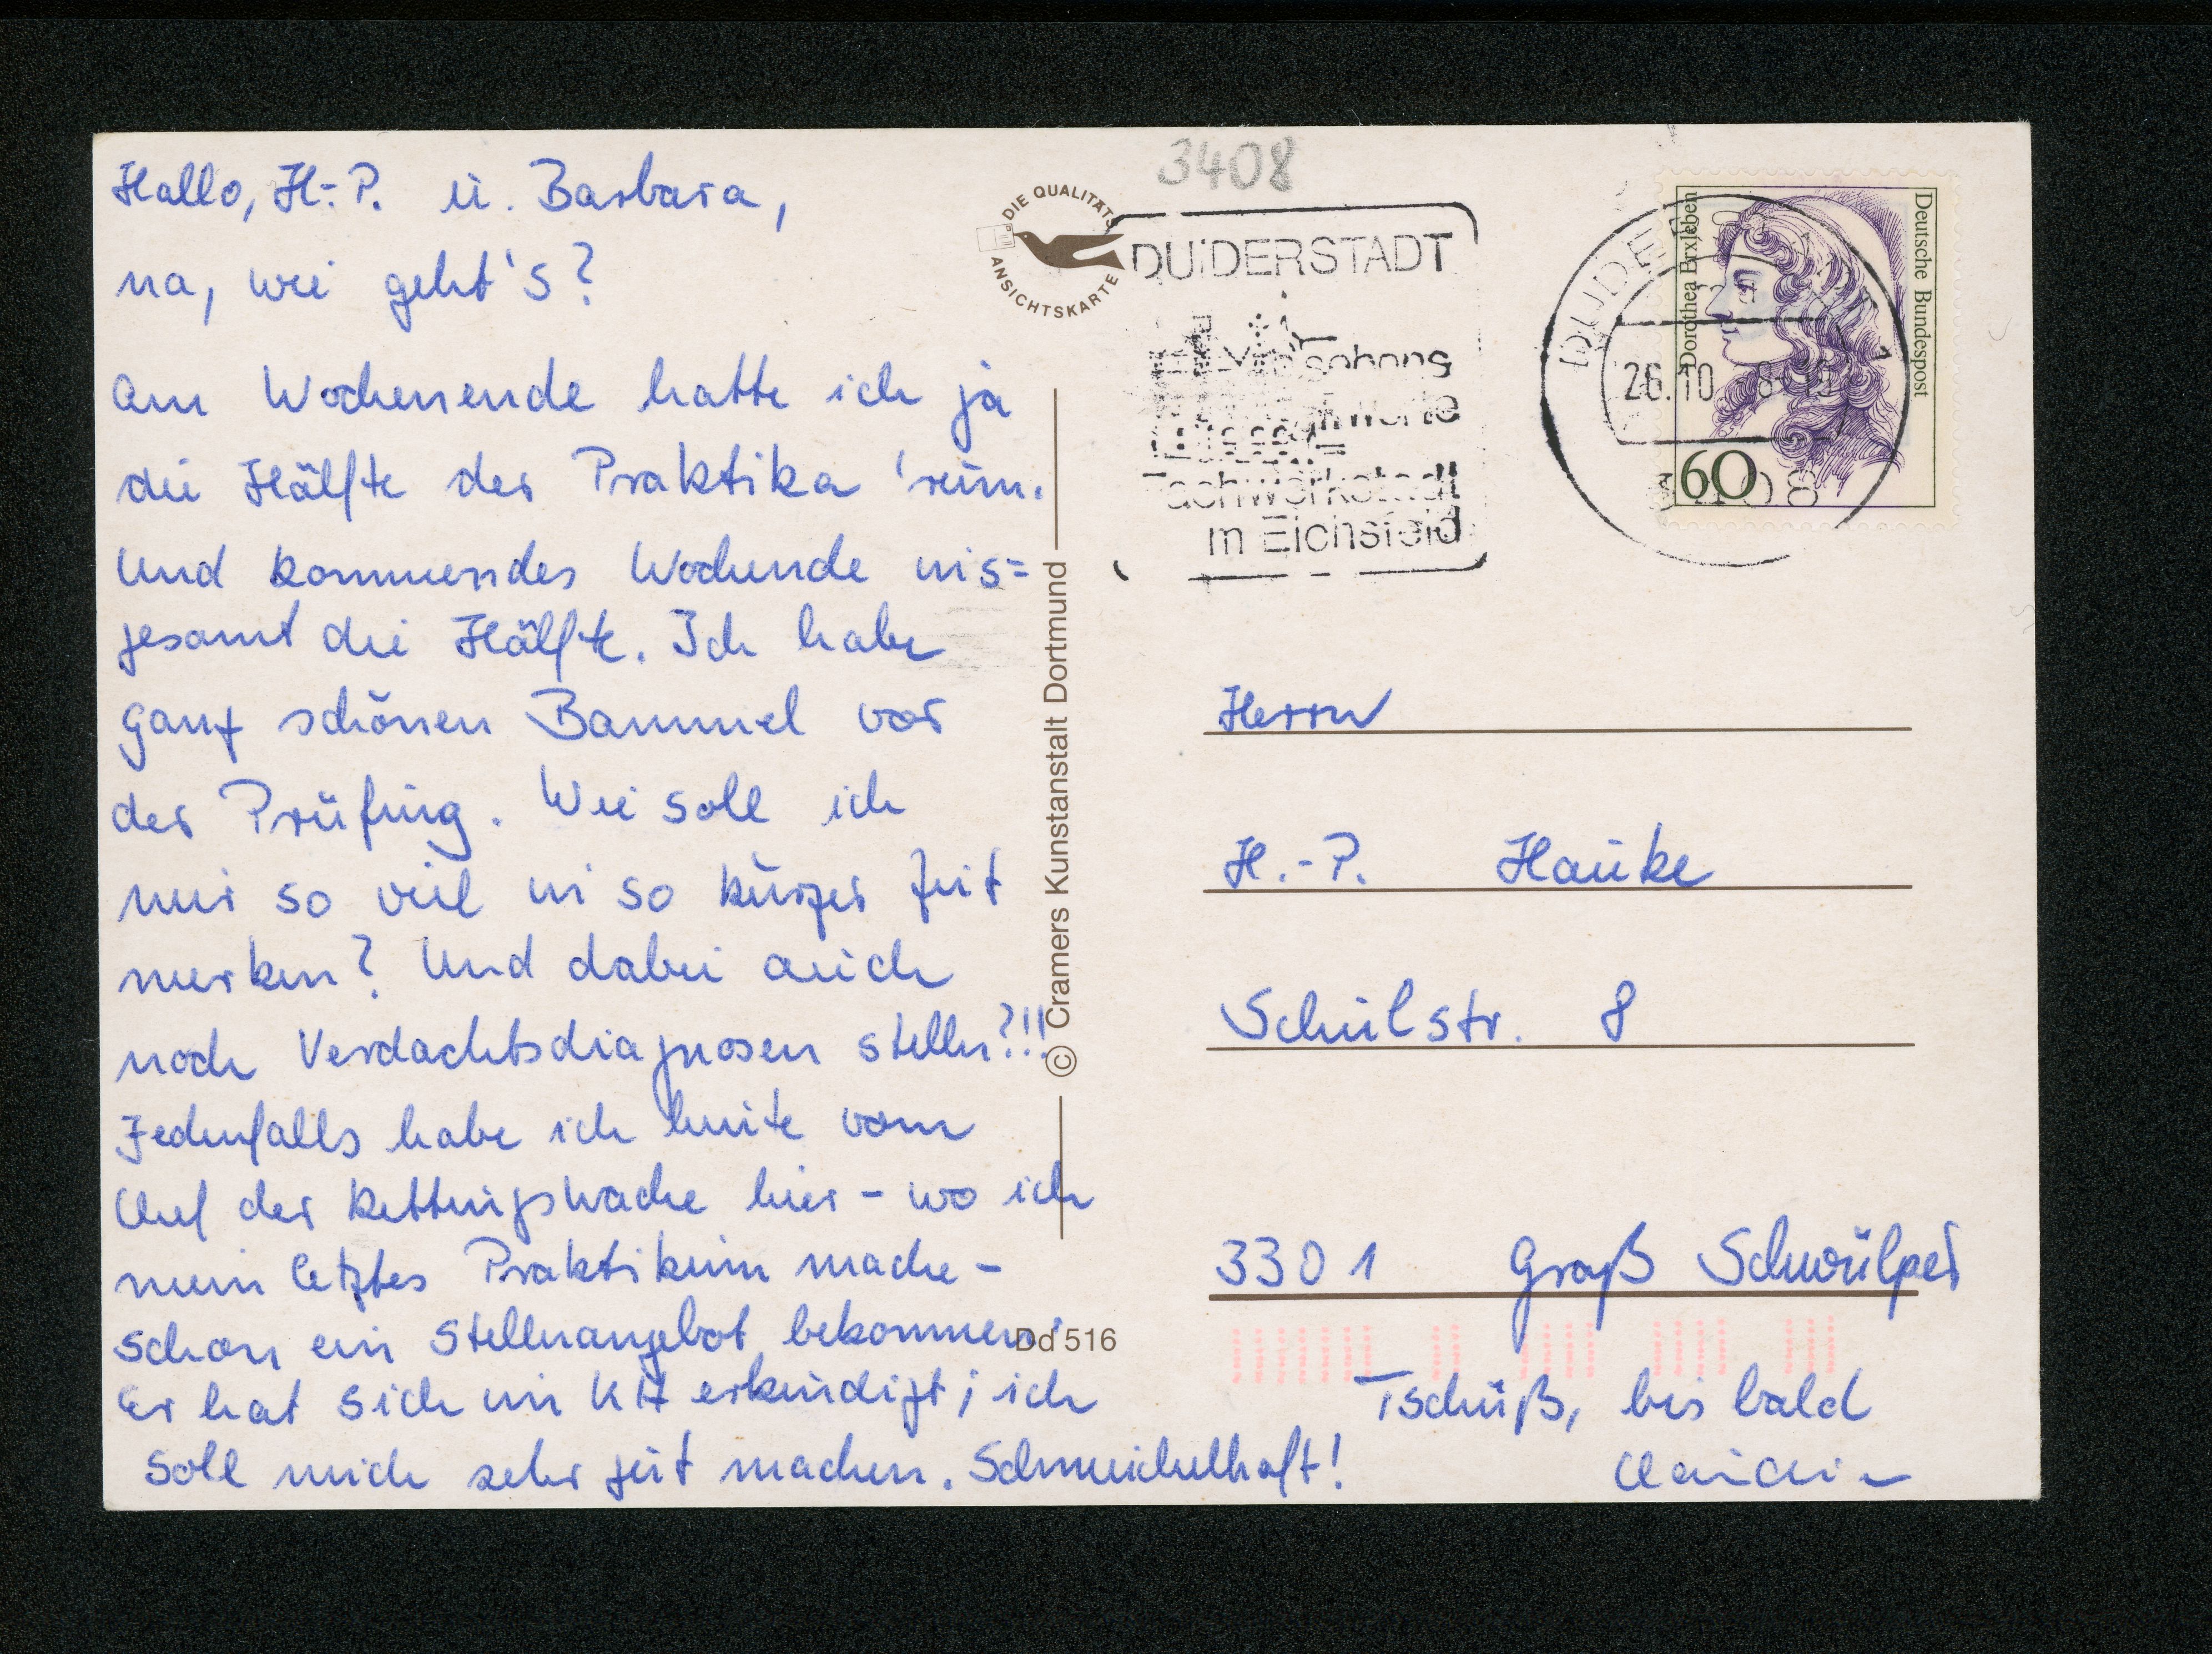 Hallo, H.-P. u. Barbara,
na, wie geht's?
Am Wochenende hatte ich ja
die Hälfte der Praktika 'rum.
Und kommendes Wochende ins=
gesamt die Hälfte. Ich habe
ganz schönen Bammel vor
der Prüfung. Wie soll ich
mir so viel in so kurzer Zeit
merken? Und dabei auch
noch Verdachtsdiagnosen stellen?!!
Jedenfalls habe ich heute vom
Chef der Rettungswache hier - wo ich
mein letztes Praktikum mache -
schon ein Stellenangebot bekommen!
Er hat sich im KH erkundigt; ich
soll mich sehr gut machen. Schmeichelhaft!
Tschüß, bis bald
3408
DIE QUALITÄTS
ANSICHTSKARTE
DUDERSTADT
Fachwerkstadt
im Eichsfeld
26.10
3408
Deutsche Bundespost
Dorothea Erxleben
60
© Cramers Kunstanstalt Dortmund
Dd 516
Herrn
H.-P. Hauke
Schulstr. 8
3301 Groß Schwülper